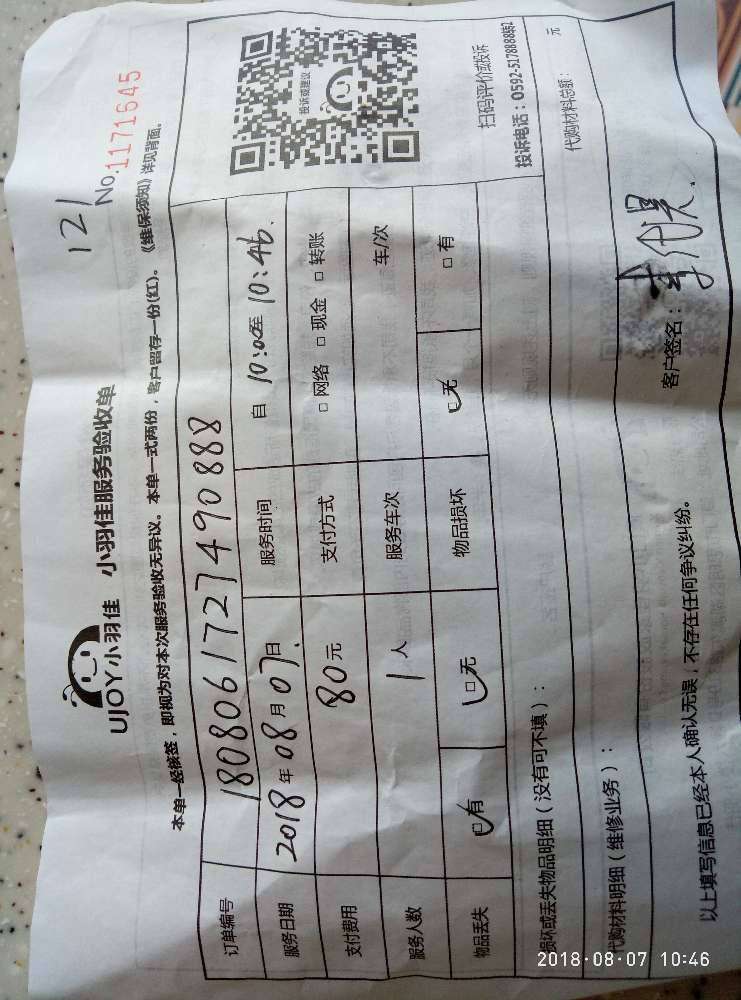 121
No.1171645
UJOY小羽佳 小羽佳服务验收单
本单一经核签，即视为对本次服务验收无异议。本单一式两份，客户留存一份(红)。《维保须知》详见背面。
订单编号 180806172749088​8
服务日期 2018年08月07日 服务时间 自 10:00至 10:46.
支付费用 80元 支付方式 □网络 □现金 □转账
服务人数 1人 服务车次 车/次
物品丢失 □有 □无 物品损坏 □无 □有
投诉或建议
扫码评价或投诉
投诉电话：0592-5178888转2
损坏或丢失物品明细（没有可不填）：
代购材料明细（维修业务）： 代购材料总额： 元
以上填写信息已经本人确认无误，不存在任何争议纠纷。 客户签名：
2018-08-07 10:46